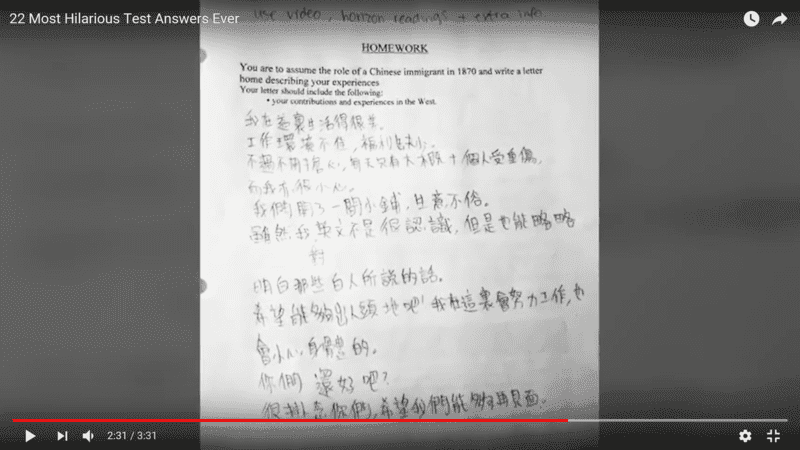 22 Most Hilarious Test Answers Ever
use video, horizon readings + extra info
HOMEWORK
You are to assume the role of a Chinese immigrant in 1870 and write a letter
home describing your experiences
Your letter should include the following:
• your contributions and experiences in the West.
我在這裏生活得很苦。
工作環境不佳，福利太少。
不過不用擔心，每天只有大概十個人受重傷，
而我亦很小心。
我們開了一間小鋪，生意不俗。
雖然我英文不是很認識，但是也能略略
對
明白那些白人所說的話。
希望能夠出人頭地吧！我在這裏會努力工作，也
會小心身體的。
你們還好吧？
很掛念你們，希望我們能夠再見面。
2:31 / 3:31